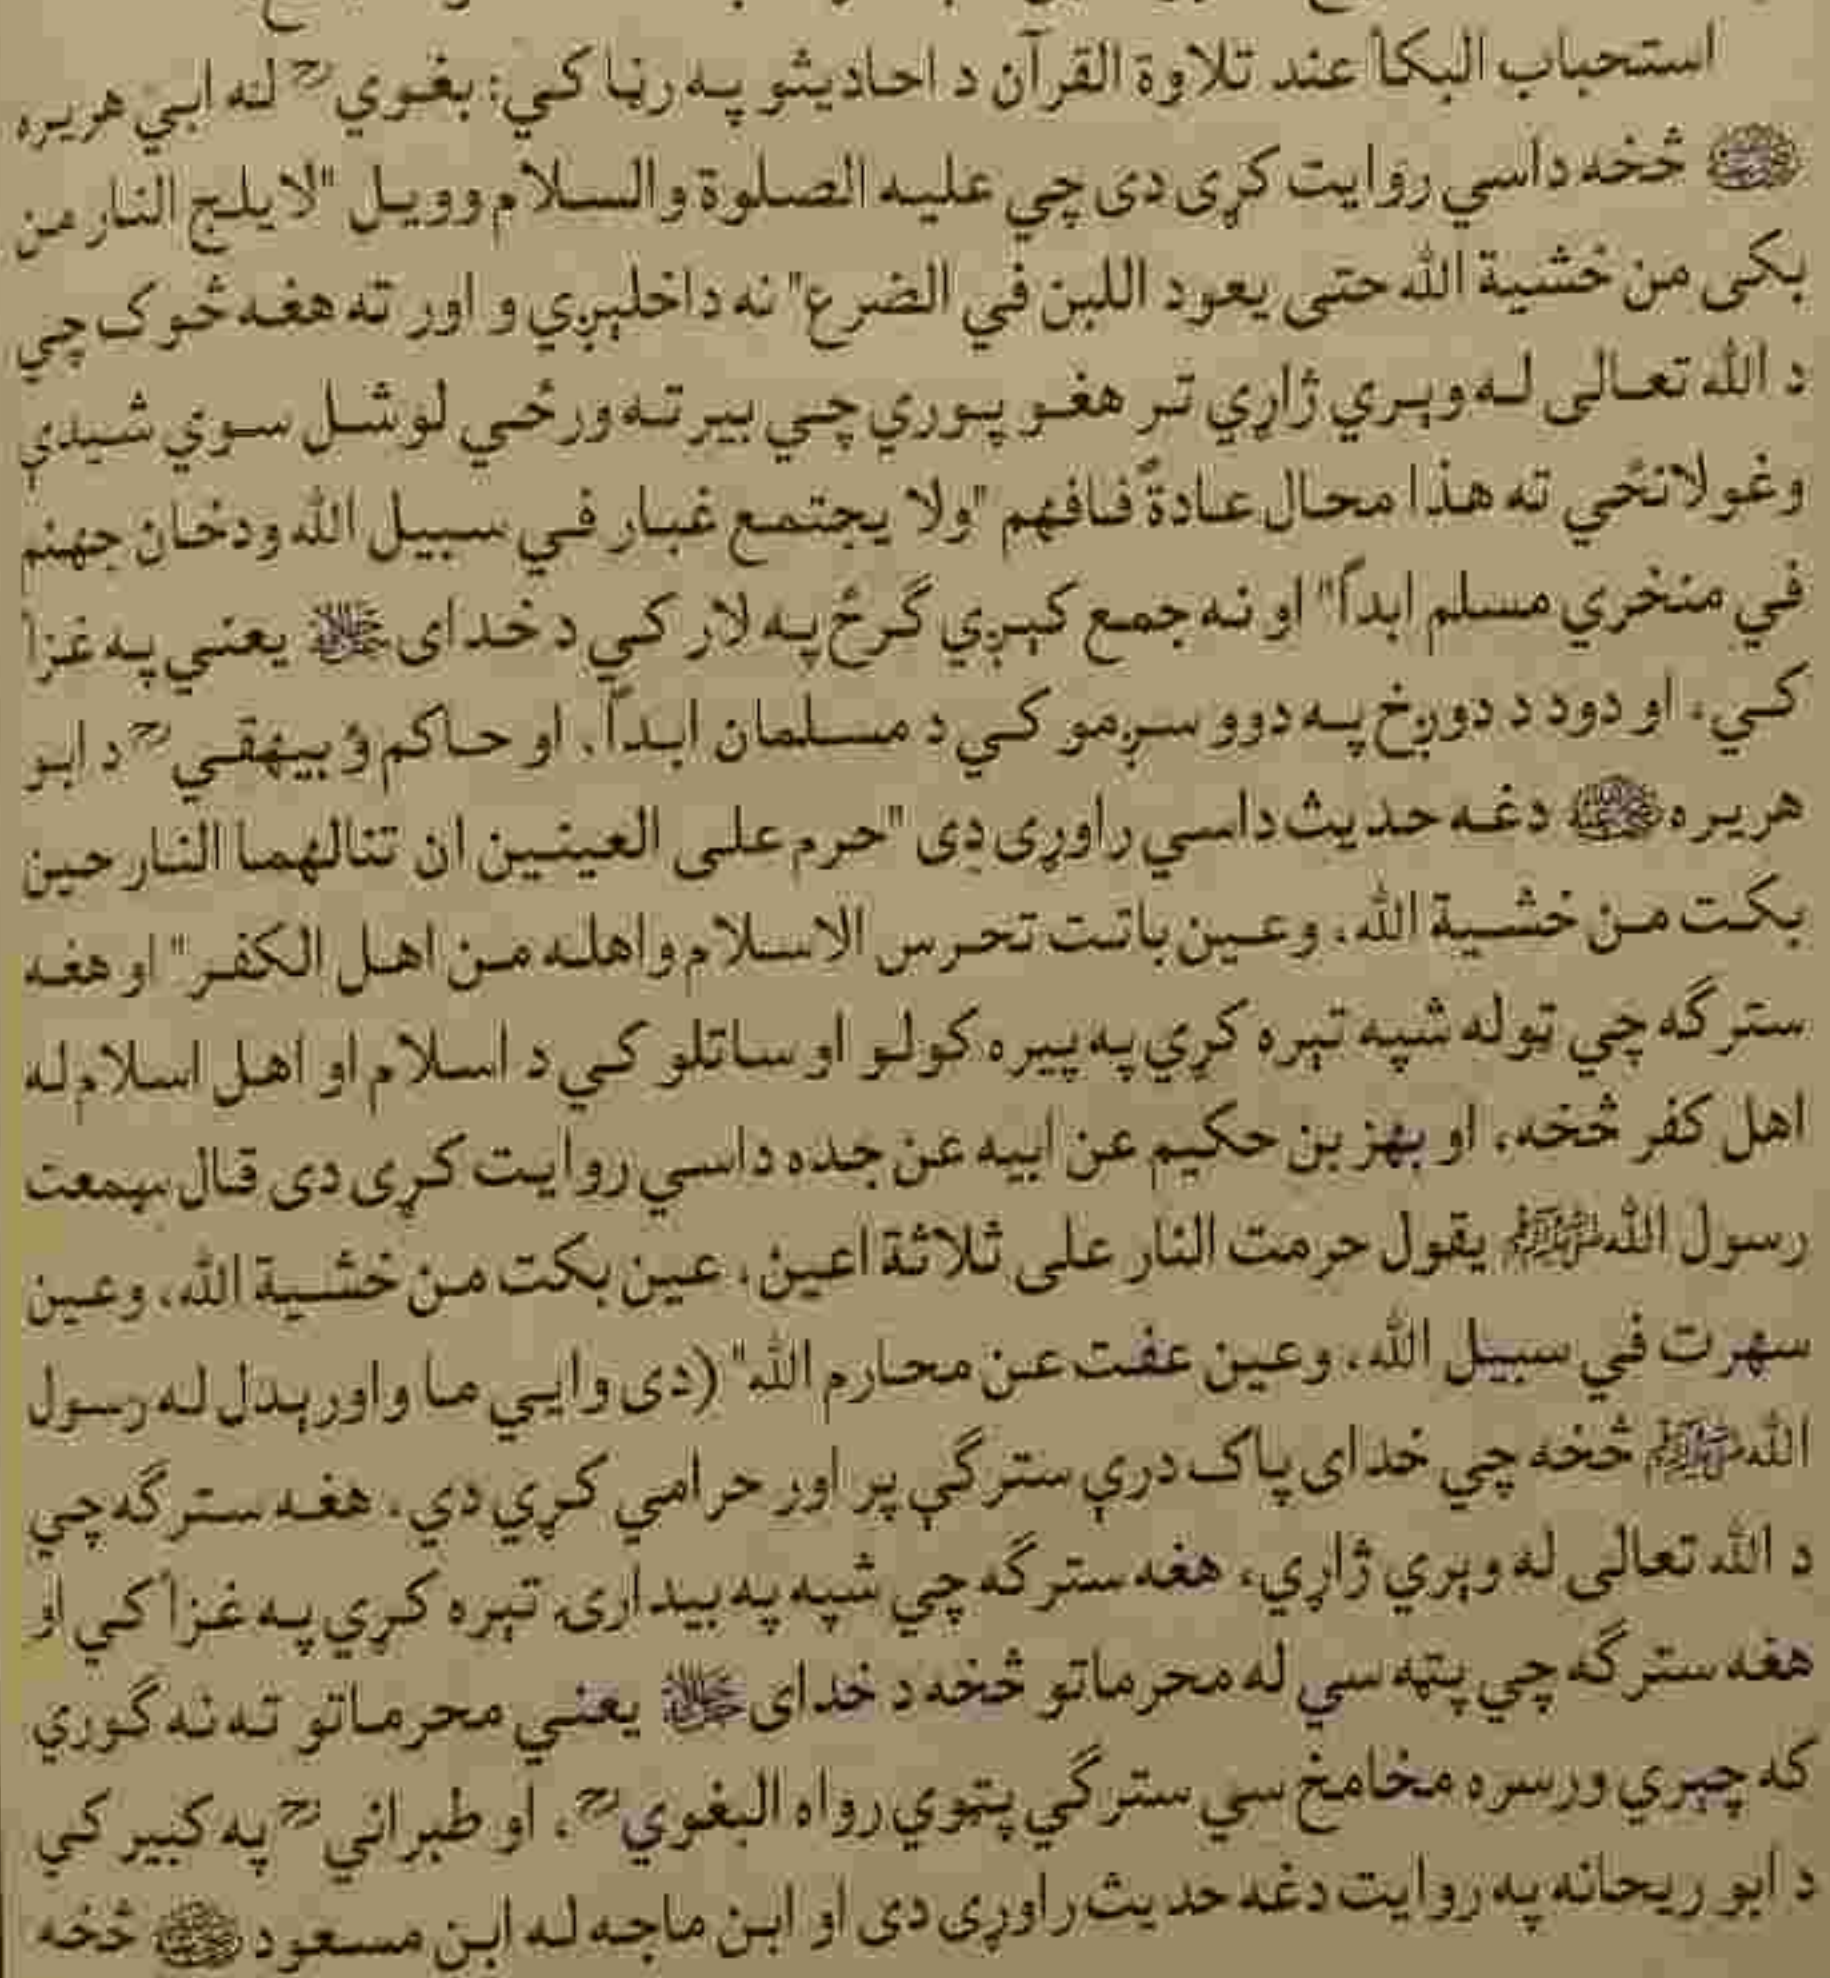 استحباب البكاْ عند تلاوة القرآن د احاديثو په رڼا کي: بغوي ؒ له ابي هريره
ؓ څخه داسي روايت کړی دی چي عليه الصلوة والسلام وويل "لايلج النار من
بکی من خشية الله حتی يعود اللبن في الضرع" نه داخليږي و اور ته هغه څوک چي
د الله تعالی له ويري ژاړي تر هغو پوري چي بيرته ورځي لوشل سوي شيدې
وغولانځي ته هذا محال عادةً فافهم "ولا يجتمع غبار في سبيل الله ودخان جهنم
في منخري مسلم ابداً" او نه جمع کېږي ګرځ په لار کي د خدای ﷻ يعني په غزا
کي، او دود د دوږخ په دوو سږمو کي د مسلمان ابداً. او حاکم ؤ بيهقي ؒ د ابو
هريره ؓ دغه حديث داسي راوړی دی "حرم علی العينين ان تنالهما النار حين
بکت من خشية الله، وعين باتت تحرس الاسلام واهله من اهل الکفر" او هغه
سترګه چي ټوله شپه تېره کړي په پيره کولو او ساتلو کي د اسلام او اهل اسلام له
اهل کفر څخه، او بهز بن حکيم عن ابيه عن جده داسي روايت کړی دی قال سمعت
رسول الله ﷺ يقول حرمت النار علی ثلاثة اعين، عين بکت من خشية الله، وعين
سهرت في سبيل الله، وعين عفت عن محارم الله" (دی وايي ما واورېدل له رسول
الله ﷺ څخه چي خدای پاک درې سترګي پر اور حرامي کړي دي. هغه سترګه چي
د الله تعالی له ويري ژاړي، هغه سترګه چي شپه په بيدارۍ تېره کړي په غزا کي او
هغه سترګه چي پټه سي له محرماتو څخه د خدای ﷻ يعني محرماتو ته نه ګوري
که چېري ورسره مخامخ سي سترګي پټوي رواه البغوي ؒ، او طبراني ؒ په کبير کي
د ابو ريحانه په روايت دغه حديث راوړی دی او ابن ماجه له ابن مسعود ؓ څخه